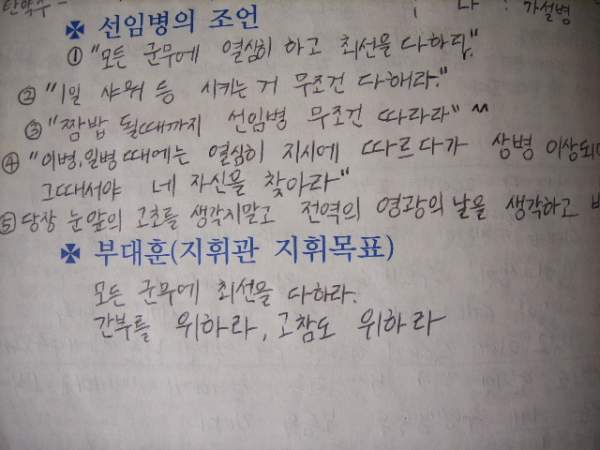 나 : 가설병
✠ 선임병의 조언
① "모든 군무에 열심히 하고 최선을 다하되."
② "1일 샤워 등 시키는 거 무조건 다해라."
③ "짬밥 될때까지 선임병 무조건 따라라" ^^
④ "이병,일병때에는 열심히 지시에 따르다가 상병 이상되
그때서야 네 자신을 찾아라"
⑤ 당장 눈앞의 고초를 생각지말고 전역의 영광의 날을 생각하고
✠ 부대훈(지휘관 지휘목표)
모든 군무에 최선을 다하라.
간부를 위하라, 고참도 위하라